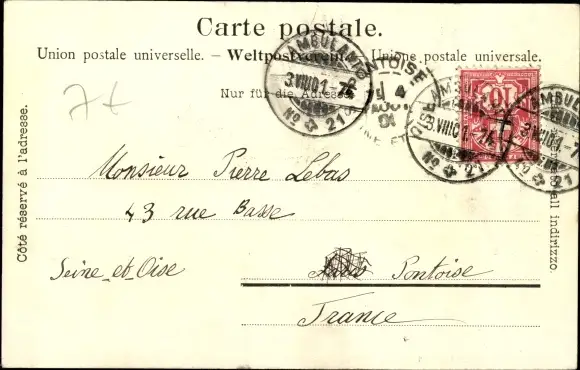 Carte postale.
Union postale universelle. – Weltpostverein. – Unione postale universale.
Nur für die Adresse.
Côté réservé à l'adresse.
AMBULANT
3.VIII.01.-7
No 21
PONTOISE
4
AOUT
01
SEINE ET OISE
AMBULANT
3.VIII.01.-7
No 21
10
AMBULANT
3.VIII.01.-7
No 21
all indirizzo.
7+
Monsieur Pierre Lebas
43 rue Basse
Seine_et_Oise
Pontoise
France